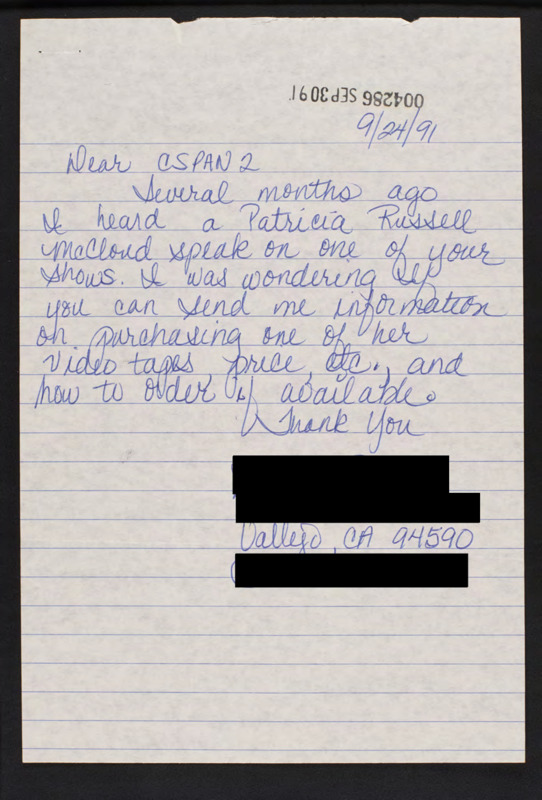 004286 SEP 30 91
9/24/91
Dear CSPAN 2
Several months ago
I heard a Patricia Russell
McCloud speak on one of your
shows. I was wondering if
you can send me information
on purchasing one of her
video tapes, price, etc., and
how to order if available.
Thank You
Vallejo, CA 94590